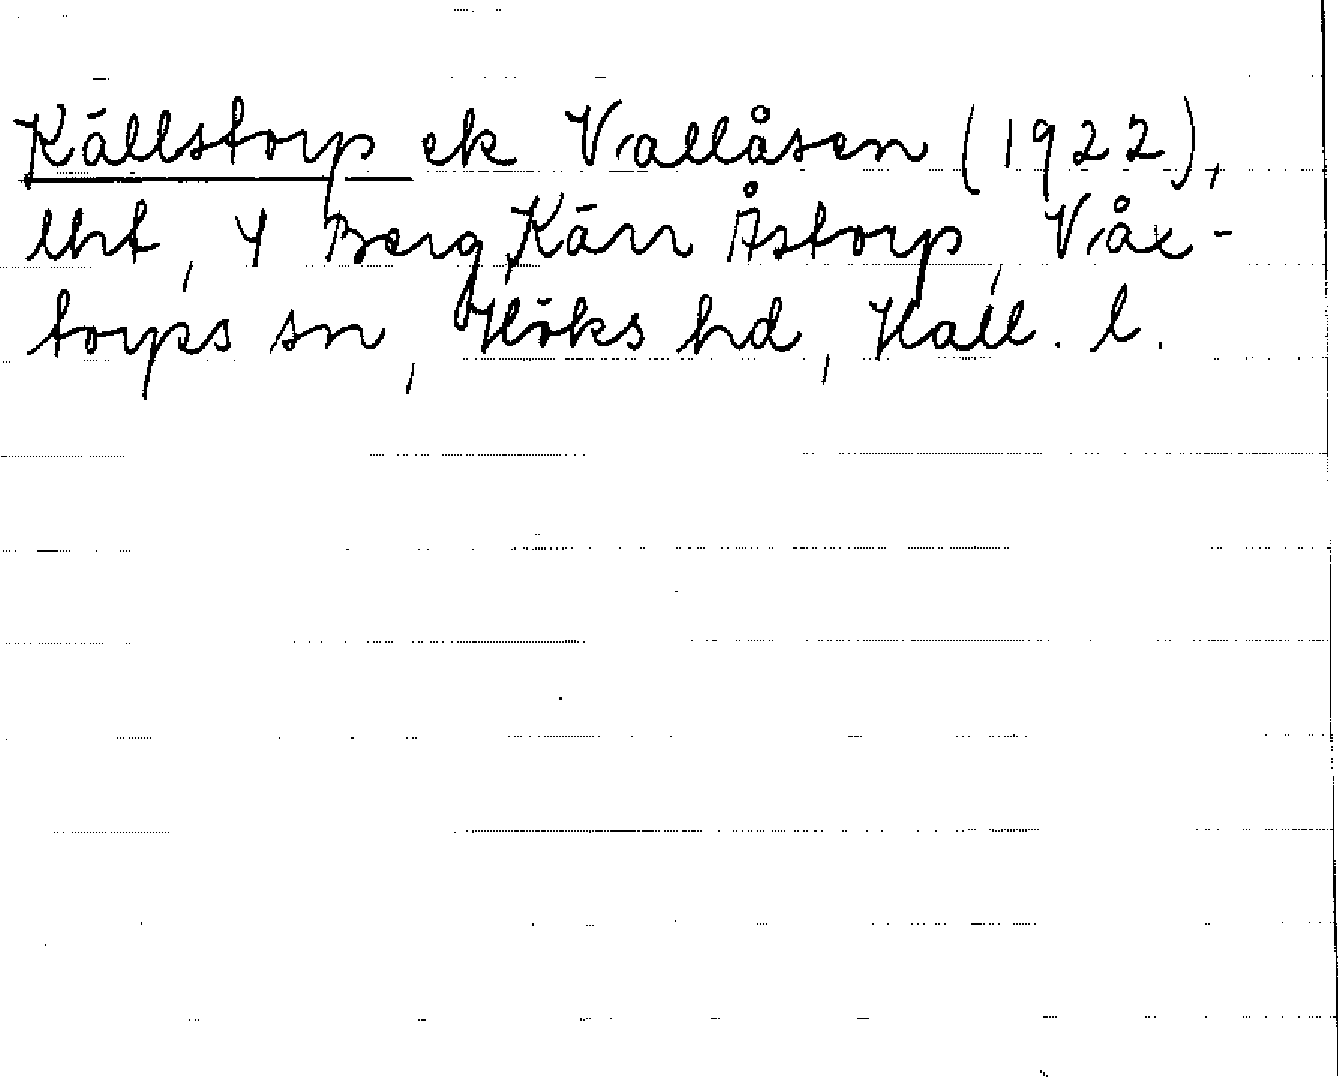 Källstorp ek Vallåsen (1922),
lht, 4 Berg, Kärr Åstorp, Våx-
torps sn, Höks hd, Hall. l.